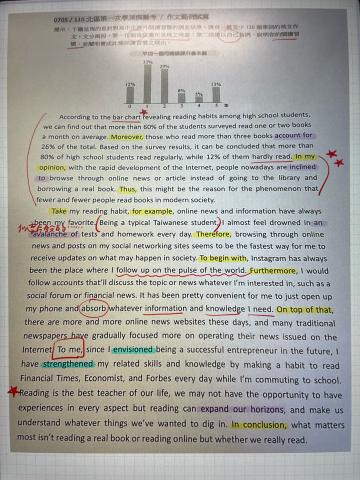 0703 / 110 北區第一次學測模擬考 / 作文範例試寫
12%
33%
29%
8%
5%
13%
0 1 2 3 4 5
According to the bar chart revealing reading habits among high school students,
we can find out that more than 60% of the students surveyed read one or two books
a month on average. Moreover, those who read more than three books account for
26% of the total. Based on the survey results, it can be concluded that more than
80% of high school students read regularly, while 12% of them hardly read. In my
opinion, with the rapid development of the Internet, people nowadays are inclined
to browse through online news or article instead of going to the library and
borrowing a real book. Thus, this might be the reason for the phenomenon that
fewer and fewer people read books in modern society.
Take my reading habit, for example, online news and information have always
been my favorite. Being a typical Taiwanese student, I almost feel drowned in an
avalanche of tests and homework every day. Therefore, browsing through online
news and posts on my social networking sites seems to be the fastest way for me to
receive updates on what may happen in society. To begin with, Instagram has always
been the place where I follow up on the pulse of the world. Furthermore, I would
follow accounts that'll discuss the topic or news whatever I'm interested in, such as a
social forum or financial news. It has been pretty convenient for me to just open up
my phone and absorb whatever information and knowledge I need. On top of that,
there are more and more online news websites these days, and many traditional
newspapers have gradually focused more on operating their news issued on the
Internet. To me, since I envisioned being a successful entrepreneur in the future, I
have strengthened my related skills and knowledge by making a habit to read
Financial Times, Economist, and Forbes every day while I'm commuting to school.
Reading is the best teacher of our life, we may not have the opportunity to have
experiences in every aspect but reading can expand our horizons, and make us
understand whatever things we've wanted to dig in. In conclusion, what matters
most isn't reading a real book or reading online but whether we really read.